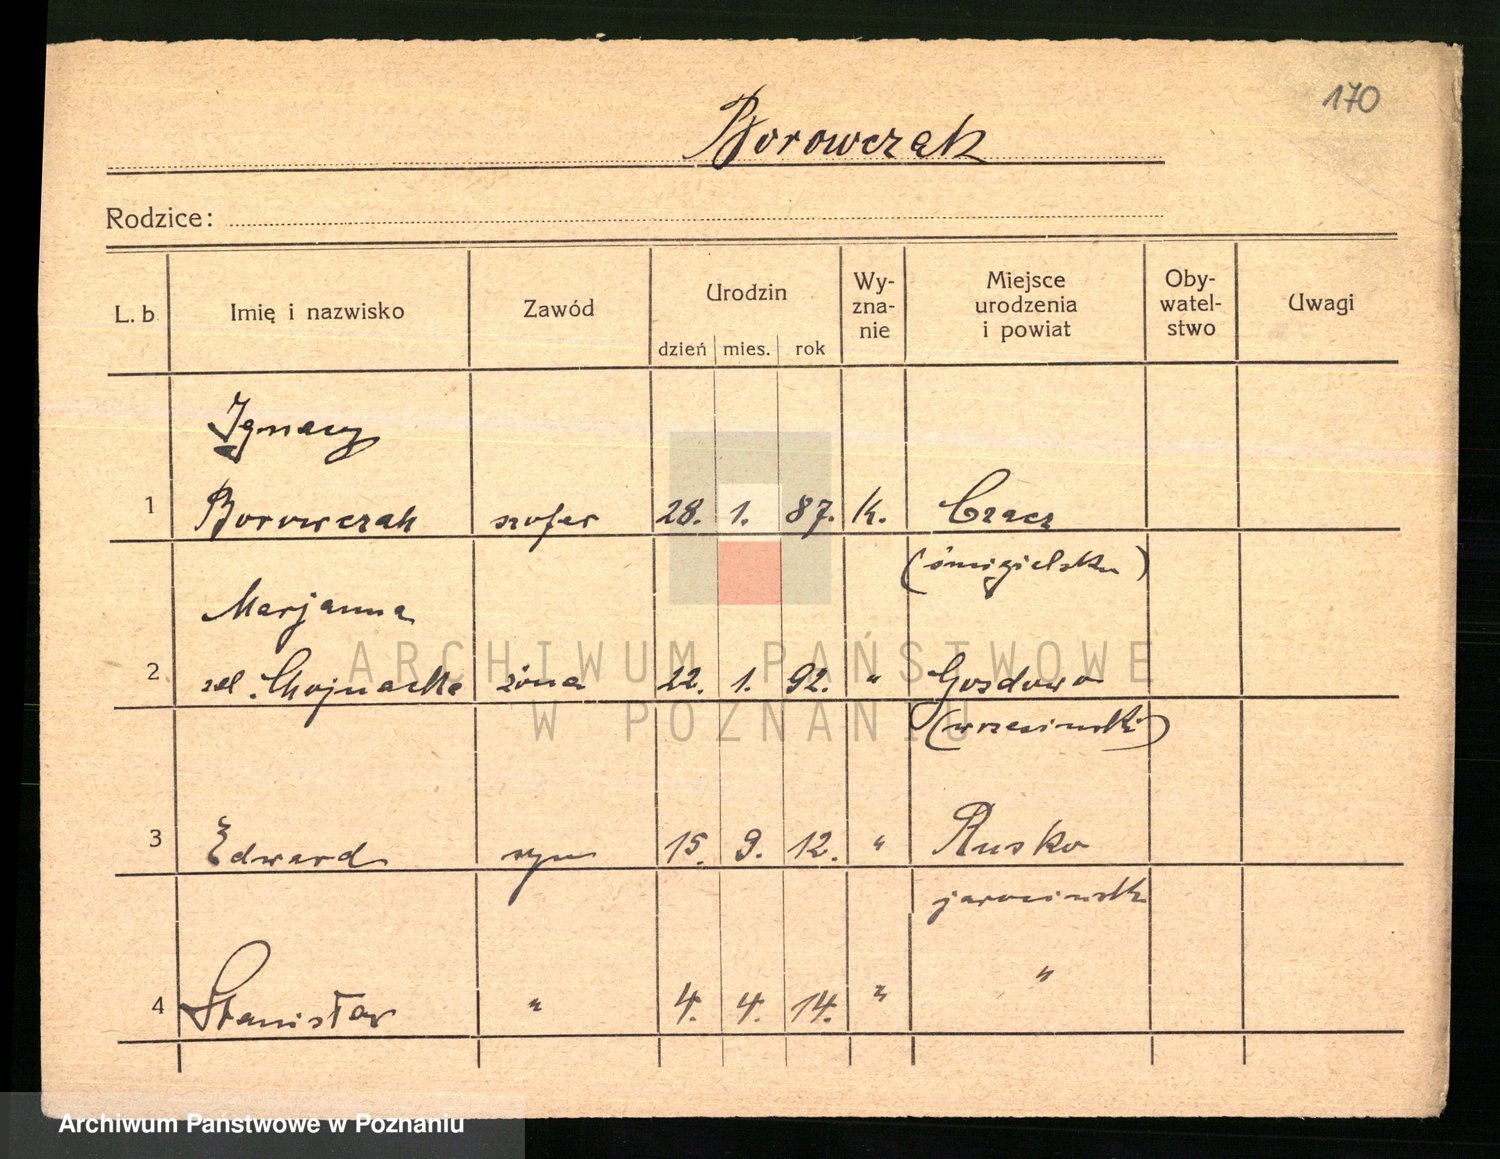 170
Borowczak
Rodzice:
L. b
Imię i nazwisko
Zawód
Urodzin
dzień mies. rok
Wy-
zna-
nie
Miejsce
urodzenia
i powiat
Oby-
watel-
stwo
Uwagi
Ignacy
1 Borowczak szofer 28. 1. 87. K. Czacz
(śmigielski)
Marjanna
2 Chojnacka żona 22. 1. 92. " Gozdowo
(wrzesiński)
3 Edward syn 15. 9. 12. " Rusko
jarocinsk
4 Stanisław " 4. 4. 14. " "
ARCHIWUM PAŃSTWOWE
W POZNANIU
Archiwum Państwowe w Poznaniu